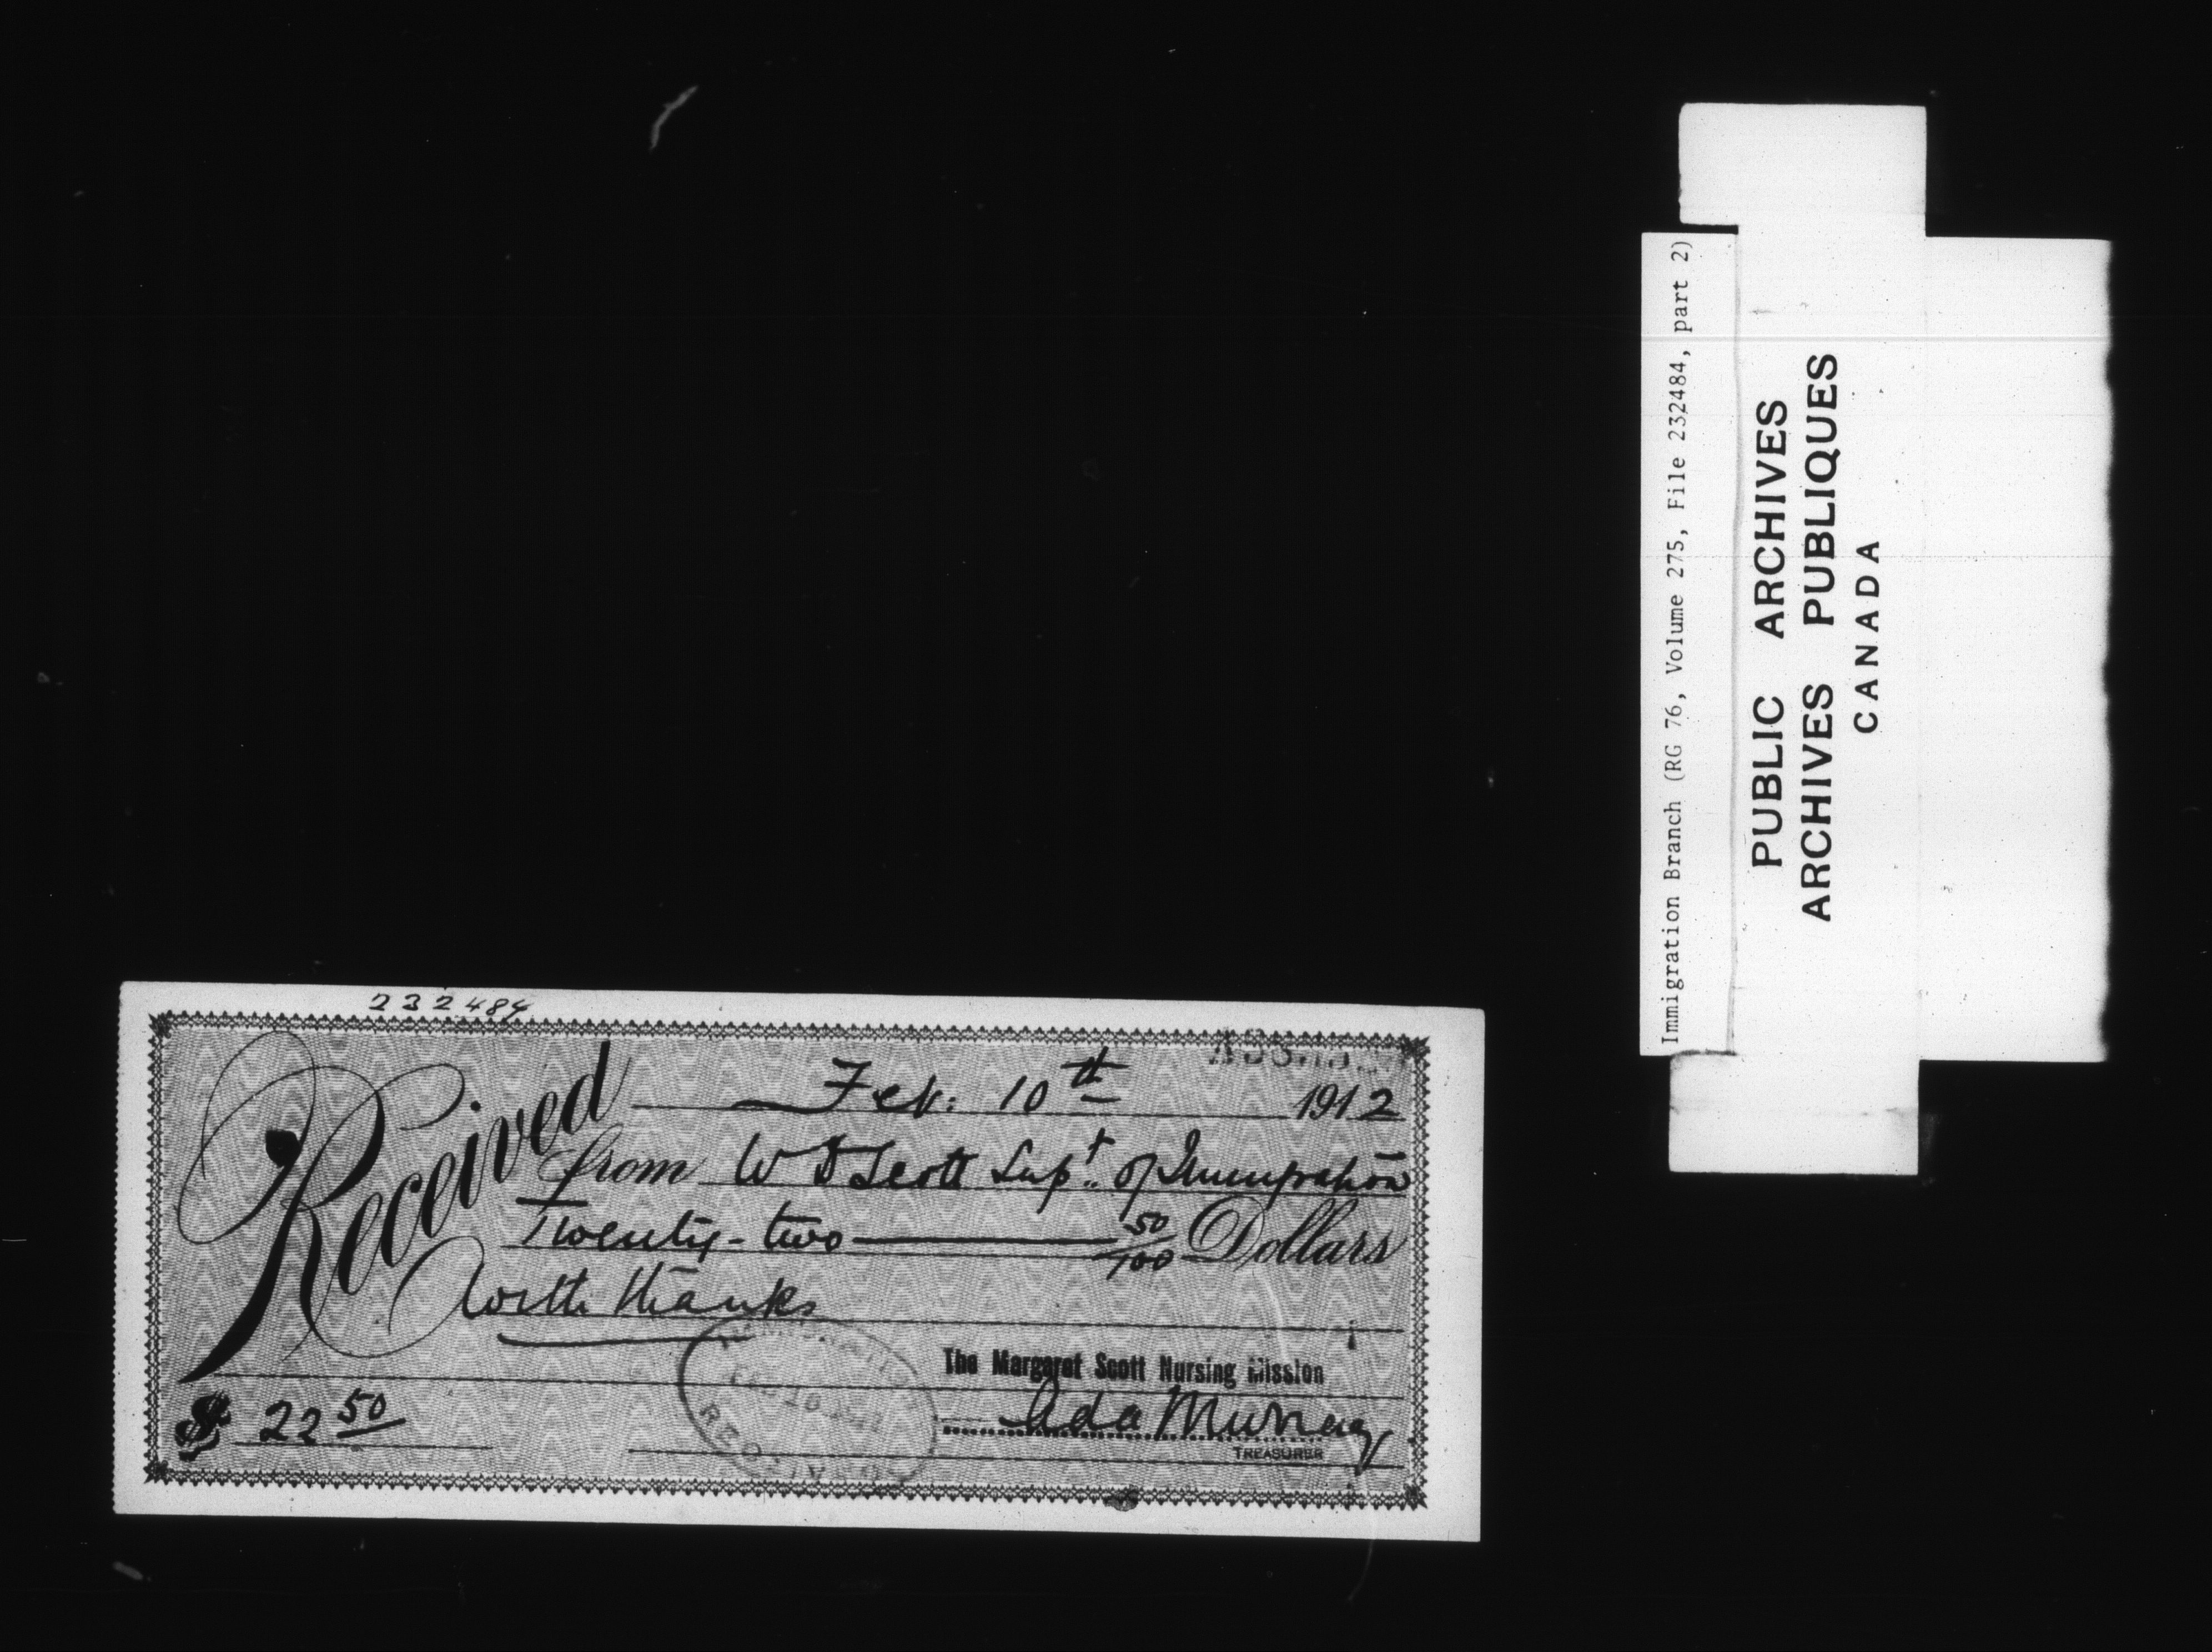 232484
Feb: 10th 1912
Received from W D Scott Supt. of Immigration
Twenty-two 50/100 Dollars
With thanks
The Margaret Scott Nursing Mission
$ 22 50
Ada Murray
TREASURER
RECEIVED
Immigration Branch (RG 76, Volume 275, File 232484, part 2)
PUBLIC ARCHIVES
ARCHIVES PUBLIQUES
CANADA